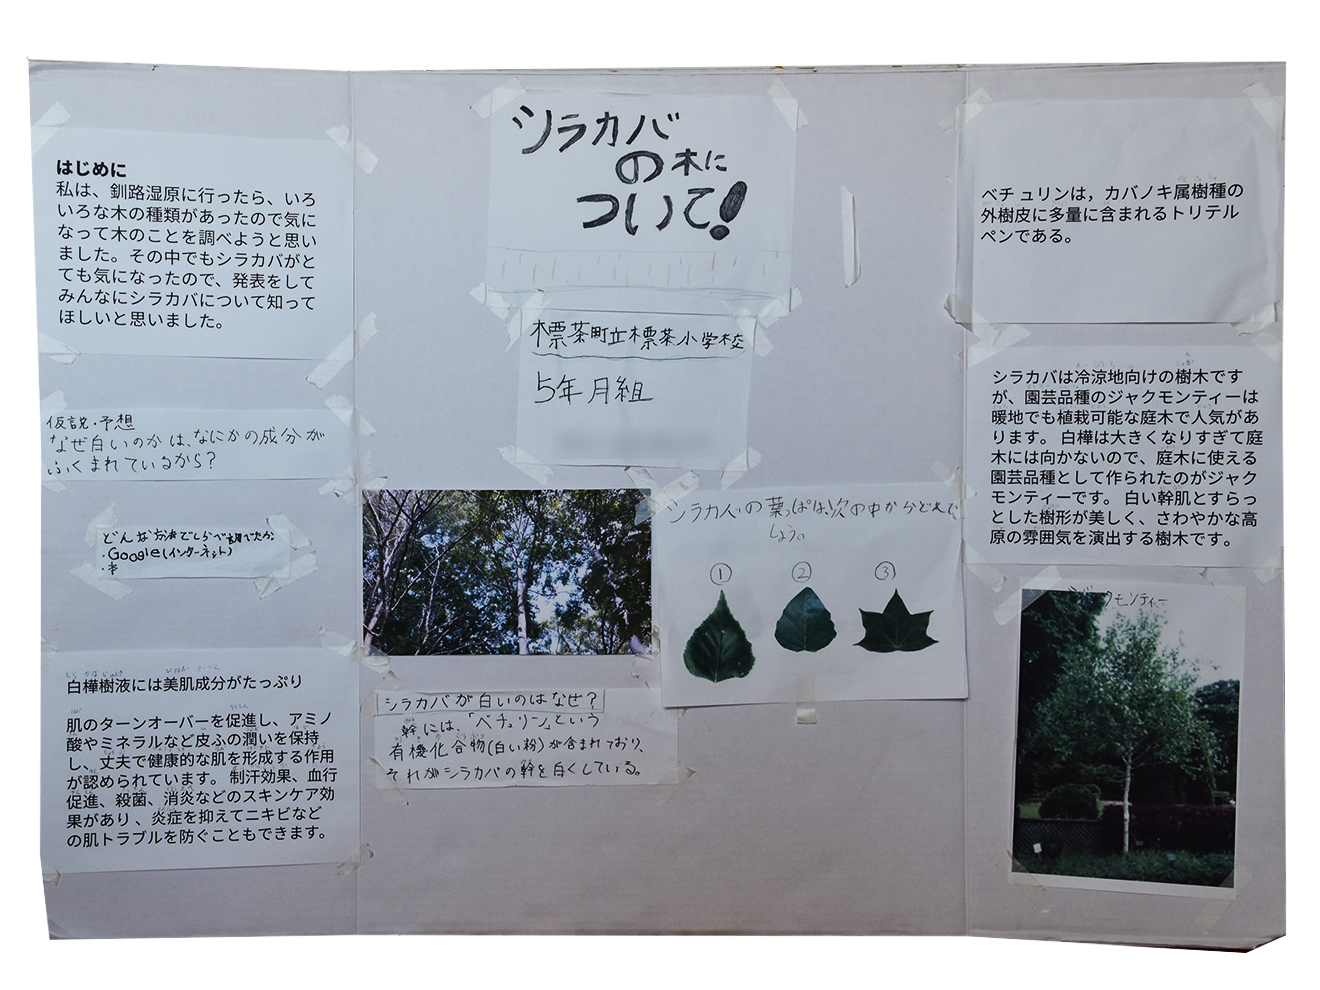 シラカバ
の木に
ついて!
標茶町立標茶小学校
5年月組
はじめに
私は、釧路湿原に行ったら、いろ
いろな木の種類があったので気に
なって木のことを調べようと思い
ました。その中でもシラカバがと
ても気になったので、発表をして
みんなにシラカバについて知って
ほしいと思いました。
仮説・予想
なぜ白いのかは、なにかの成分が
ふくまれているから?
どんな方法でしらべ
・Google(インターネット)
・本
白樺樹液には美肌成分がたっぷり
肌のターンオーバーを促進し、アミノ
酸やミネラルなど皮ふの潤いを保持
し、丈夫で健康的な肌を形成する作用
が認められています。 制汗効果、血行
促進、殺菌、消炎などのスキンケア効
果があり、炎症を抑えてニキビなど
の肌トラブルを防ぐこともできます。
シラカバの葉っぱは、次の中からどれで
しょう。
① ② ③
シラカバが白いのはなぜ?
幹には、「ベチュリン」という
有機化合物(白い粉)が含まれており、
それがシラカバの幹を白くしている。
ベチュリンは，カバノキ属樹種の
外樹皮に多量に含まれるトリテル
ペンである。
シラカバは冷涼地向けの樹木です
が、園芸品種のジャクモンティーは
暖地でも植栽可能な庭木で人気があ
ります。 白樺は大きくなりすぎて庭
木には向かないので、庭木に使える
園芸品種として作られたのがジャク
モンティーです。 白い幹肌とすらっ
とした樹形が美しく、さわやかな高
原の雰囲気を演出する樹木です。
ジャクモンティー